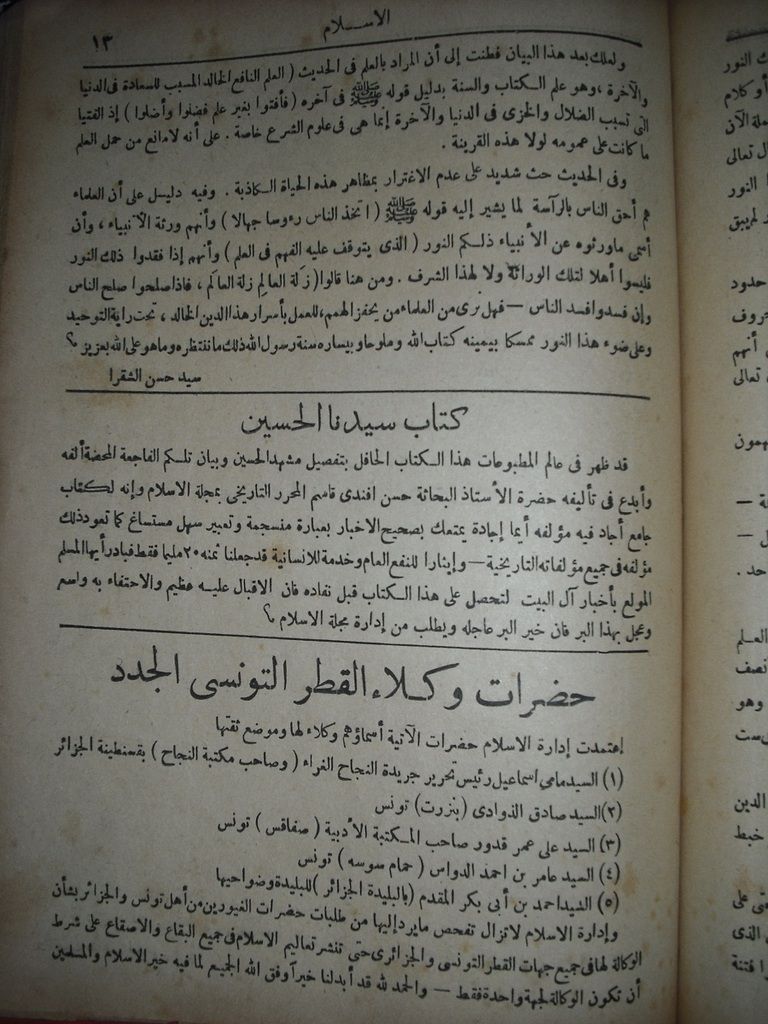 الاســلام
١٣
ولعلك بعد هذا البيان فطنت إلى أن المراد بالعلم فى الحديث ( العلم النافع الخالد المسبب للسعادة فى الدنيا
والآخرة ، وهو علم الـكتاب والسنة بدليل قوله ﷺ فى آخره ( فأفتوا بغير علم فضلوا وأضلوا ) إذ الفتيا
التى تسبب الضلال والخزى فى الدنيا والآخرة إنما هى فى علوم الشرع خاصة . على أنه لامانع من حمل العلم
ما كانت على عمومه لولا هذه القرينة .
وفى الحديث حث شديد على عدم الاغترار بمظاهر هذه الحياة الـكاذبة . وفيه دليـل على أن العلماء
هم أحق الناس بالرآسة لما يشير إليه قوله ﷺ ( اتخذ الناس رءوسا جهالا ) وأنهم ورثة الأنبياء ، وأن
أسمى ماورثوه عن الأنبياء ذلـكم النور ( الذى يتوقف عليه الفهم فى العلم ) وأنهم إذا فقدوا ذلك النور
فليسوا أهلا لتلك الوراثة ولا لهذا الشرف . ومن هنا قالوا ( زَلة العالِم زلة العالَم ) ، فاذا صلحوا صلح الناس
وإن فسدوا فسد الناس — فهل نرى من العلماء من يحفز الهمم للعمل بأسرار هذا الدين الخالد ، تحت راية التوحيد
وعلى ضوء هذا النور ممسكا بيمينه كتاب الله وملوحا بيساره سنة رسول الله ذلك ماننتظره وما هو على الله بعزيز ؟
سيد حسن الشقرا
كتاب سيدنا الحسين
قد ظهر فى عالم المطبوعات هذا الـكتاب الحافل بتفصيل مشهد الحسين وبيان تلـكم الفاجعة المحضة ألفه
وأبدع فى تأليفه حضرة الأستاذ البحاثة حسن افندى قاسم المحرر التاريخى بمجلة الاسلام وإنه لـكتاب
جامع أجاد فيه مؤلفه أيما إجادة يمتعك بصحيح الاخبار بعبارة منسجمة وتعبير سهل مستساغ كما تعود ذلك
مؤلفه فى جميع مؤلفاته التاريخية — وإيثارا للنفع العام وخدمة للانسانية قد جعلنا ثمنه ٢٠ مليما فقط فبادر أيها المسلم
المولع بأخبار آل البيت لتحصل على هذا الـكتاب قبل نفاده فان الاقبال عليـه عظيم والاحتفاء به واسع
وعجل بهذا البر فان خير البر عاجله ويطلب من إدارة مجلة الاسلام ؟
حضرات وكـلاء القطر التونسى الجدد
إعتمدت إدارة الاسلام حضرات الآتية أسماؤهم وكلاء لها وموضع ثقتها
(١) السيد مامى اسماعيل رئيس تحرير جريدة النجاح الغراء ( وصاحب مكتبة النجاح ) بقسنطينة الجزائر
(٢) السيد صادق الذوادى ( بنزرت ) تونس
(٣) السيد على عمر قدور صاحب المـكتبة الأدبية ( صفاقس ) تونس
(٤) السيد عامر بن احمد الدواس ( حمام سوسه ) تونس
(٥) السيد احمد بن أبى بكر المقدم ( بالبليدة الجزائر ) للبليدة وضواحيها
وإدارة الاسلام لاتزال تفحص مايرد إليها من طلبات حضرات الغيورين من أهل تونس والجزائر بشأن
الوكالة لها فى جميع جهات القطر التونسى والجزائرى حتى تنشر تعاليم الاسلام فى جميع البقاع والاصقاع على شرط
أن تكون الوكالة لجهة واحدة فقط — والحمد لله قد أبدلنا خيرا وفق الله الجميع لما فيه خير الاسلام والمسلمين